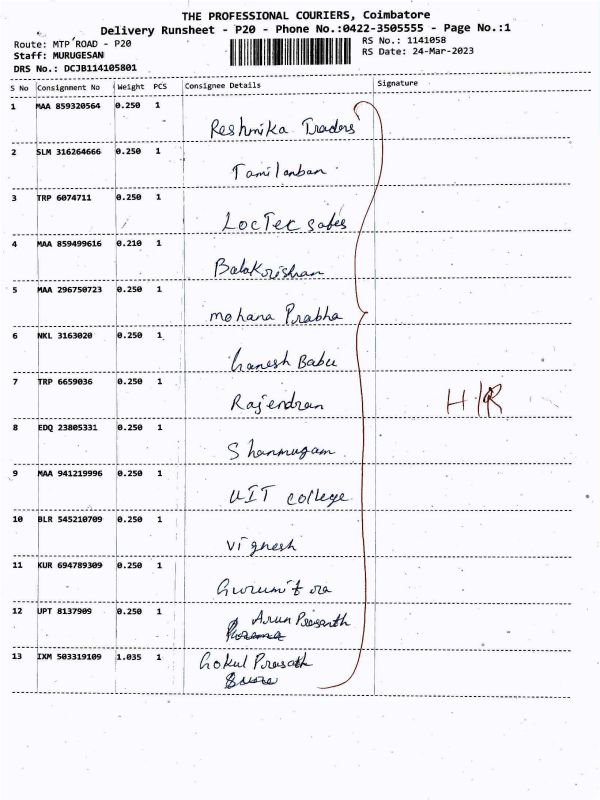 THE PROFESSIONAL COURIERS, Coimbatore
Delivery Runsheet - P20 - Phone No.:0422-3505555 - Page No.:1
Route: MTP ROAD - P20
RS No.: 1141058
Staff: MURUGESAN
RS Date: 24-Mar-2023
DRS No.: DCJB114105801
S No Consignment No Weight PCS Consignee Details Signature
1 MAA 859320564 0.250 1
Reshmika Traders
2 SLM 316264666 0.250 1
Tamilanban
3 TRP 6074711 0.250 1
LocTec safes
4 MAA 859499616 0.210 1
Balakrishnan
5 MAA 296750723 0.250 1
mohana Prabha
6 NKL 3163020 0.250 1
Ganesh Babu
7 TRP 6659036 0.250 1
Rajendran H/R
8 EDQ 23805331 0.250 1
Shanmugam
9 MAA 941219996 0.250 1
UIT college
10 BLR 545210709 0.250 1
Vignesh
11 KUR 694789309 0.250 1
12 UPT 8137909 0.250 1
Arun Prasanth
13 IXM 503319109 1.035 1
Gokul Prasath